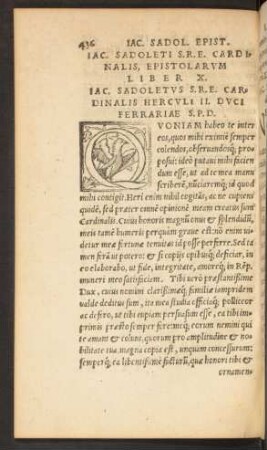 436 IAC. SADOL. EPIST.
IAC. SADOLETI S.R.E. CARDI-
NALIS, EPISTOLARVM
LIBER X.
IAC. SADOLETVS S.R.E. CAR-
DINALIS HERCVLI II. DVCI
FERRARIAE S.P.D.
QVONIAM habeo te inter
eos, quos mihi eximiè semper
colendos, obseruandosq́; pro-
posui: ideo putaui mihi facien
dum esse, ut ad te mea manu
scriberē, nūciaremq́; id quod
mihi contigit. Heri enim nihil cogitās, ac ne cupiens
quidē, sed præter omnē opinionē meam creatus sum
Cardinalis. Cuius honoris magnitudinē & splendidū,
meis tamē humeris perquàm graue est: nō enim ui-
detur mea fortunæ tenuitas id posse perferre. Sed ta-
men ferā ut potero: & si copijs opibusq́; deficiar, in
eo elaborabo, ut fide, integritate, amoreq́; in Rēp.
muneri meo satisfaciam. Tibi uerò præstantissime
Dux, cuius nomini clarissimæq́; familiæ iampridem
ualde deditus sum, ita mea studia officiaq́; polliceor
ac defero, ut tibi cupiam persuasum esse, ea tibi im-
primis præsto semper fore: meq́; eorum nemini qui
te amant & colunt, quorum pro amplitudine & no-
bilitate tua magna copia est, unquam concessurum:
semperq́; ea libentissimè facturū, quæ honori tibi &
ornamen-